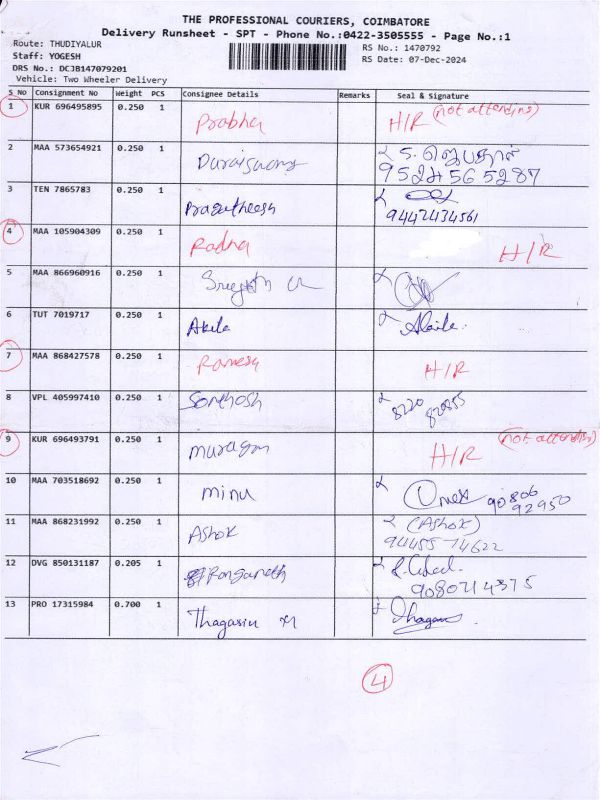 THE PROFESSIONAL COURIERS, COIMBATORE
Delivery Runsheet - SPT - Phone No.:0422-3505555 - Page No.:1
Route: THUDIYALUR
Staff: YOGESH
DRS No.: DCJB147079201
Vehicle: Two Wheeler Delivery
RS No.: 1470792
RS Date: 07-Dec-2024
S No Consignment No Weight PCS Consignee Details Remarks Seal & Signature
1 KUR 696495895 0.250 1 Prabha H/R (not attending)
2 MAA 573654921 0.250 1 Duraisamy
9524565287
3 TEN 7865783 0.250 1 Pragatheesh
9442434561
4 MAA 105904309 0.250 1 Radha H/R
5 MAA 866960916 0.250 1
6 TUT 7019717 0.250 1 Akila Akila
7 MAA 868427578 0.250 1 Ramesh H/R
8 VPL 405997410 0.250 1 Santhosh 8220
9 KUR 696493791 0.250 1 Murugan H/R (not attending)
10 MAA 703518692 0.250 1 minu 90806
92950
11 MAA 868231992 0.250 1 Ashok (Ashok)
94455 74622
12 DVG 850131187 0.205 1 Ranganath
9080714375
13 PRO 17315984 0.700 1
4